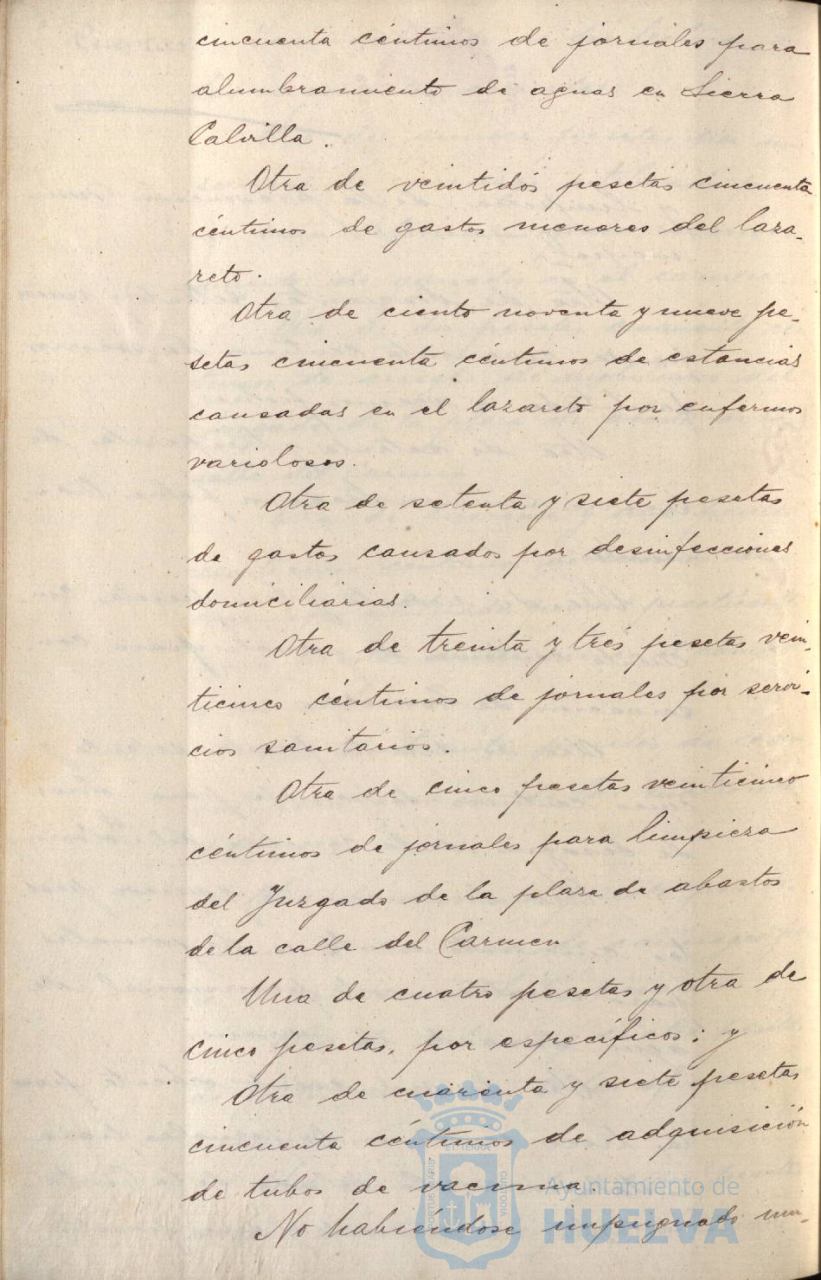 cincuenta céntimos de jornales para
alumbramiento de aguas en Sierra
Calvilla.
Otra de veintidós pesetas cincuenta
céntimos de gastos menores del laza-
reto.
Otra de ciento noventa y nueve pe-
setas cincuenta céntimos de estancias
causadas en el lazareto por enfermos
variolosos.
Otra de setenta y siete pesetas
de gastos causados por desinfecciones
domiciliarias.
Otra de treinta y tres pesetas vein-
ticinco céntimos de jornales por servi-
cios sanitarios.
Otra de cinco pesetas veinticinco
céntimos de jornales para limpieza
del Juzgado de la plaza de abastos
de la calle del Carmen
Una de cuatro pesetas y otra de
cinco pesetas, por específicos; y
Otra de cuarenta y siete pesetas
cincuenta céntimos de adquisición
de tubos de vacuna.
No habiéndose impugnado nin-
Ayuntamiento de
HUELVA